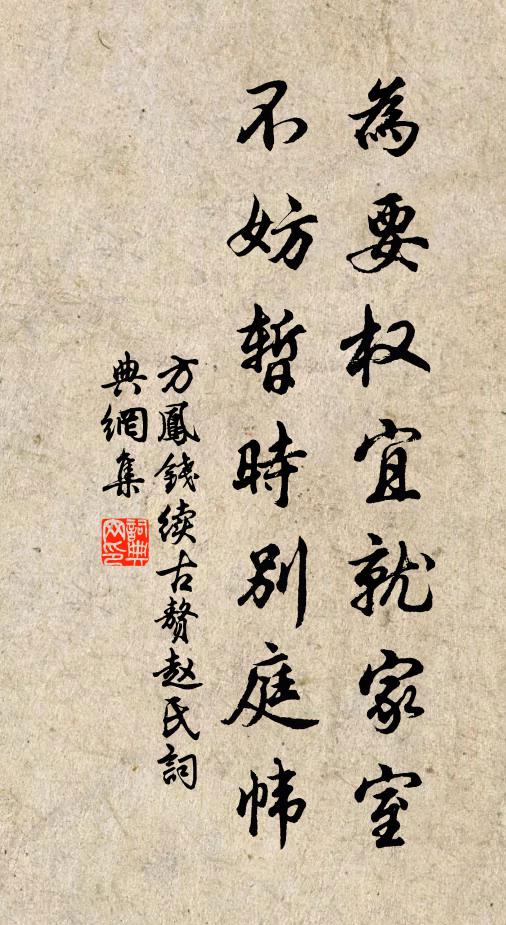 為要权宜就家室
不妨暫時别庭帏
方鳳錢续古赘赵氏詞
典網集
詞典
网印